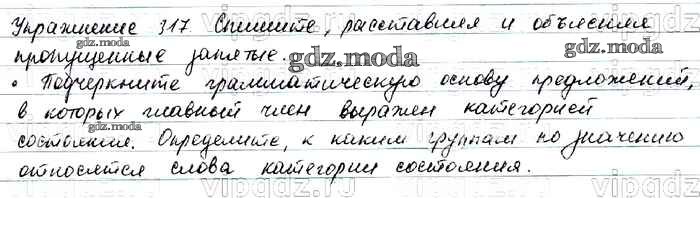 Упражнение 317 Спишите, расставляя и объясняя
пропущенные запятые.
• Подчеркните грамматическую основу предложений,
в которых главный член выражен категорией
состояния. Определите, к каким группам по значению
относятся слова категории состояния.
gdz.moda
gdz.moda
gdz.moda
gdz.moda
gdz.moda
vipgdz.ru
vipgdz.ru